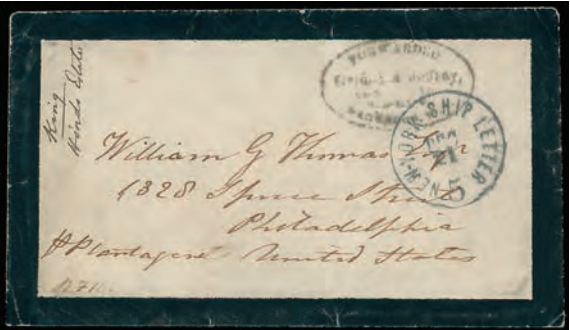 King
Hinds Estate
FORWARDED
NEW-YORK SHIP LETTER
21
5
William G Thomas Esqr
1328 Spruce Street
Philadelphia
United States
p Plantagenet